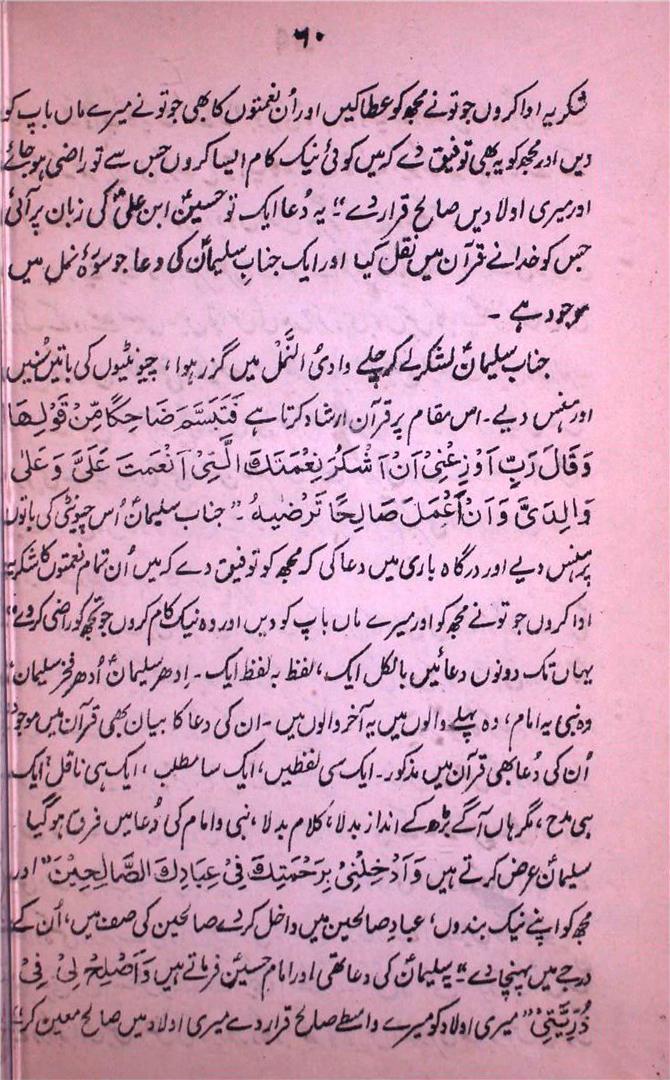 ۶۰
شکریہ ادا کروں جو تو نے مجھ کو عطا کیں اور اُن نعمتوں کا بھی جو تو نے میرے ماں باپ کو
دیں اور مجھ کو یہ بھی توفیق دے کہ میں کوئی نیک کام ایسا کروں جس سے تو راضی ہو جائے
اور میری اولاد میں صالح قرار دے"۔ یہ دُعا ایک تو حسینؑ ابن علیؑ کی زبان پر آئی
جس کو خدا نے قرآن میں نقل کیا اور ایک جناب سلیمانؑ کی دعا جو سورۂ نمل میں
موجود ہے ۔
جناب سلیمانؑ لشکر لے کر چلے وادیُ النَّمْل میں گزر ہوا، چیونٹیوں کی باتیں سُنیں
اور ہنس دیے۔ اس مقام پر قرآن ارشاد کرتا ہے فَتَبَسَّمَ ضَاحِکًا مِّنْ قَوْلِہَا
وَقَالَ رَبِّ اَوْزِعْنِیْ اَنْ اَشْکُرَ نِعْمَتَکَ الَّتِیْ اَنْعَمْتَ عَلَیَّ وَعَلٰی
وَالِدَیَّ وَاَنْ اَعْمَلَ صَالِحًا تَرْضٰیہُ۔" جناب سلیمانؑ اُس چیونٹی کی باتوں
پر ہنس دیے اور درگاہ باری میں دعا کی کہ مجھ کو توفیق دے کہ میں اُن تمام نعمتوں کا شکریہ
ادا کروں جو تو نے مجھ کو اور میرے ماں باپ کو دیں اور وہ نیک کام کروں جو تجھ کو راضی کر دے"
یہاں تک دونوں دعائیں بالکل ایک، لفظ بہ لفظ ایک۔ اِدھر سلیمانؑ اُدھر فخر سلیمانؑ
وہ نبی یہ امام، وہ پہلے والوں میں یہ آخر والوں میں۔ ان کی دعا کا بیان بھی قرآن میں موجود
اُن کی دُعا بھی قرآن میں مذکور۔ ایک سی لفظیں، ایک سا مطلب، ایک ہی ناقل، ایک
ہی مدح، مگر ہاں آگے بڑھ کے انداز بدلا، کلام بدلا، نبی و امام کی دُعا میں فرق ہو گیا
سلیمانؑ عرض کرتے ہیں وَاَدْخِلْنِیْ بِرَحْمَتِکَ فِیْ عِبَادِکَ الصَّالِحِیْنَ" اور
مجھ کو اپنے نیک بندوں، عبادِ صالحین میں داخل کر دے صالحین کی صف میں، اُن کے
درجے میں پہنچا دے"۔ یہ سلیمانؑ کی دعا تھی اور امام حسینؑ فرماتے ہیں وَاَصْلِحْ لِیْ فِیْ
ذُرِّیَّتِیْ" میری اولاد کو میرے واسطے صالح قرار دے میری اولاد میں صالح معین کر دے